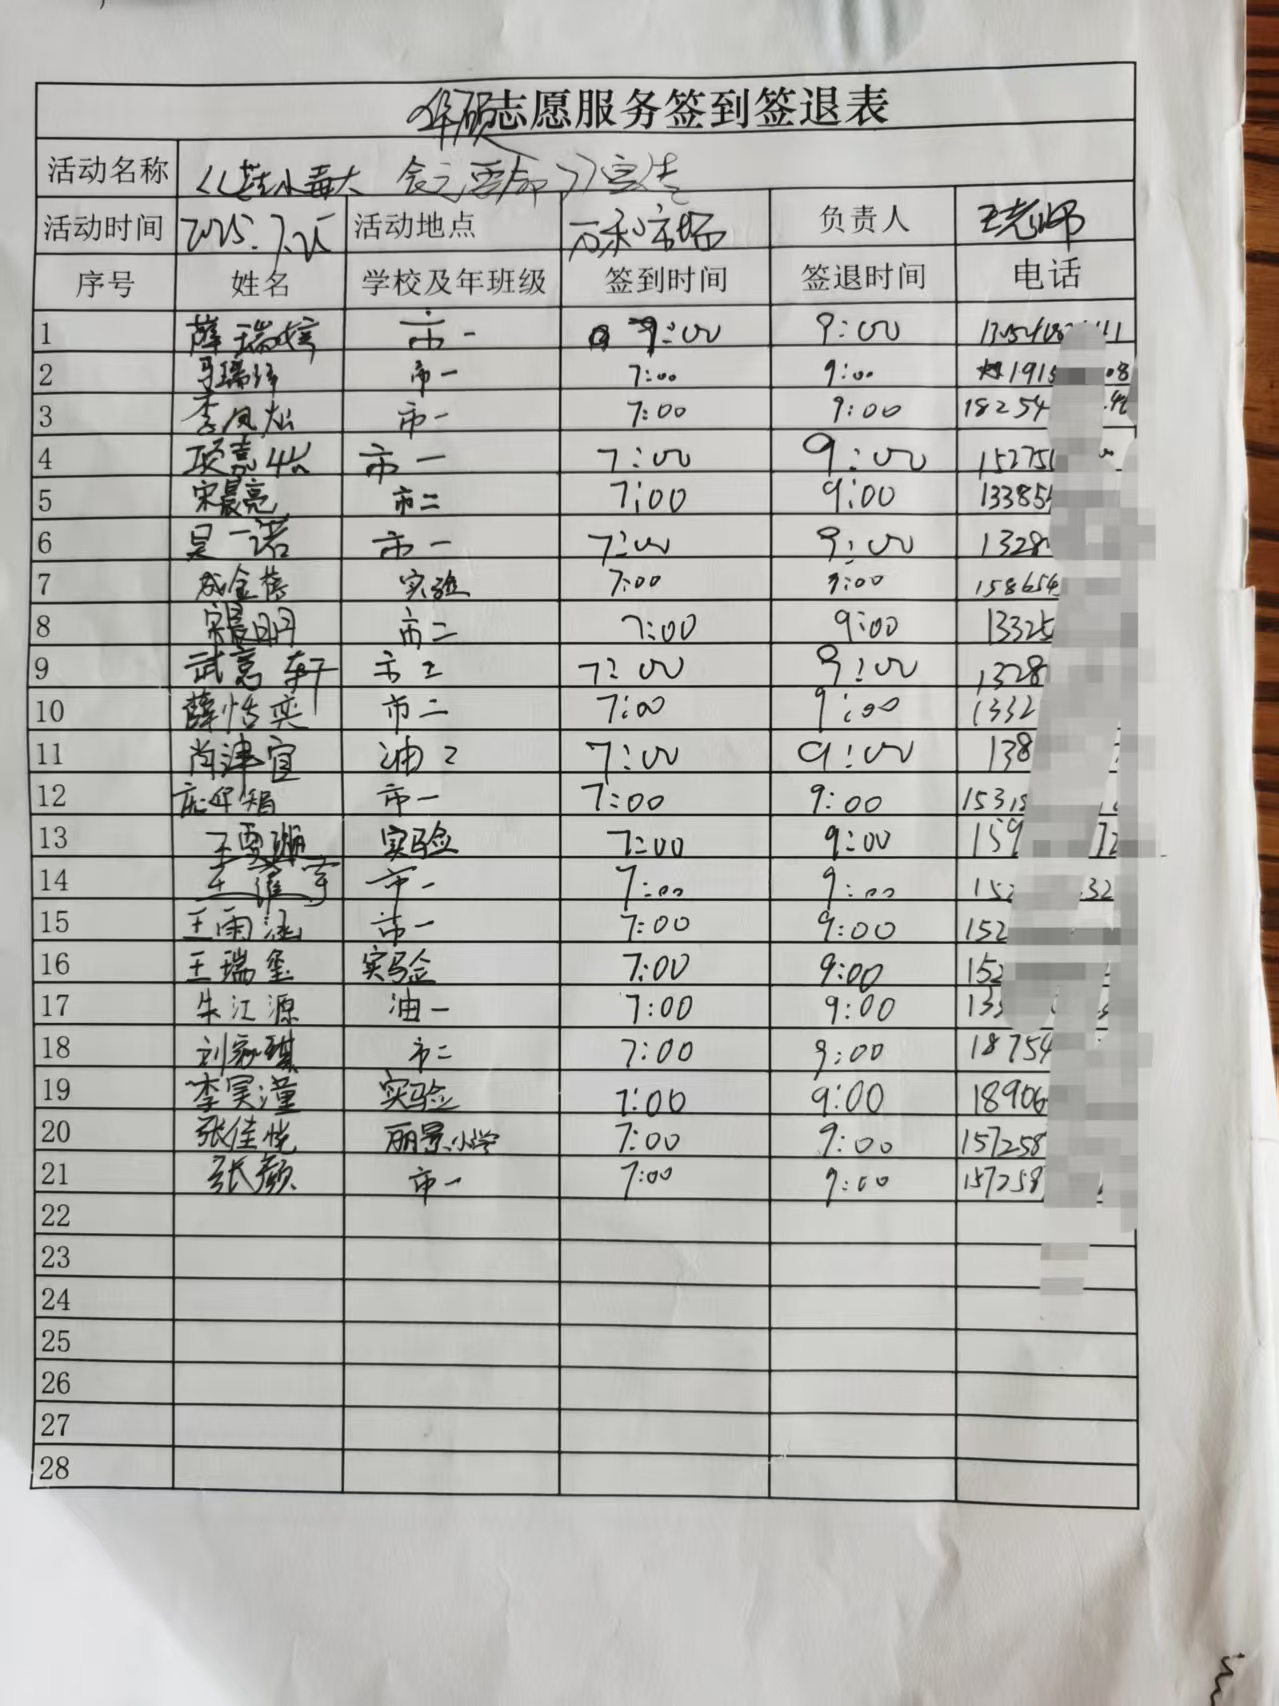 华硕志愿服务签到签退表
活动名称 《蓝小毒大 会元要命》宣传
活动时间 2025.7.25 活动地点 万和市场 负责人 王老师
序号 姓名 学校及年班级 签到时间 签退时间 电话
1 薛瑞婷 市一 9:00 9:00
2 马瑞 市一 7:00 9:00 1915 08
3 李凤 市一 7:00 9:00 18254
4 项嘉 市一 7:00 9:00 15275
5 宋晨亮 市二 7:00 9:00 13385
6 吴一诺 市一 7:00 9:00 1328
7 成金蓓 实验 7:00 9:00 158654
8 宋晨明 市二 7:00 9:00 13325
9 武意轩 市二 7:00 9:00 1328
10 薛恬奕 市二 7:00 9:00 1332
11 尚津宜 油二 7:00 9:00 138
12 市一 7:00 9:00 1531
13 王雯珊 实验 7:00 9:00 159 72
14 王 市一 7:00 9:00 152 32
15 王雨涵 市一 7:00 9:00 152
16 王瑞玺 实验 7:00 9:00 152
17 朱江源 油一 7:00 9:00 13
18 刘家琪 市二 7:00 9:00 18754
19 李昊潼 实验 7:00 9:00 18906
20 张佳悦 丽景小学 7:00 9:00 157258
21 张颜 市一 7:00 9:00 157258
22
23
24
25
26
27
28